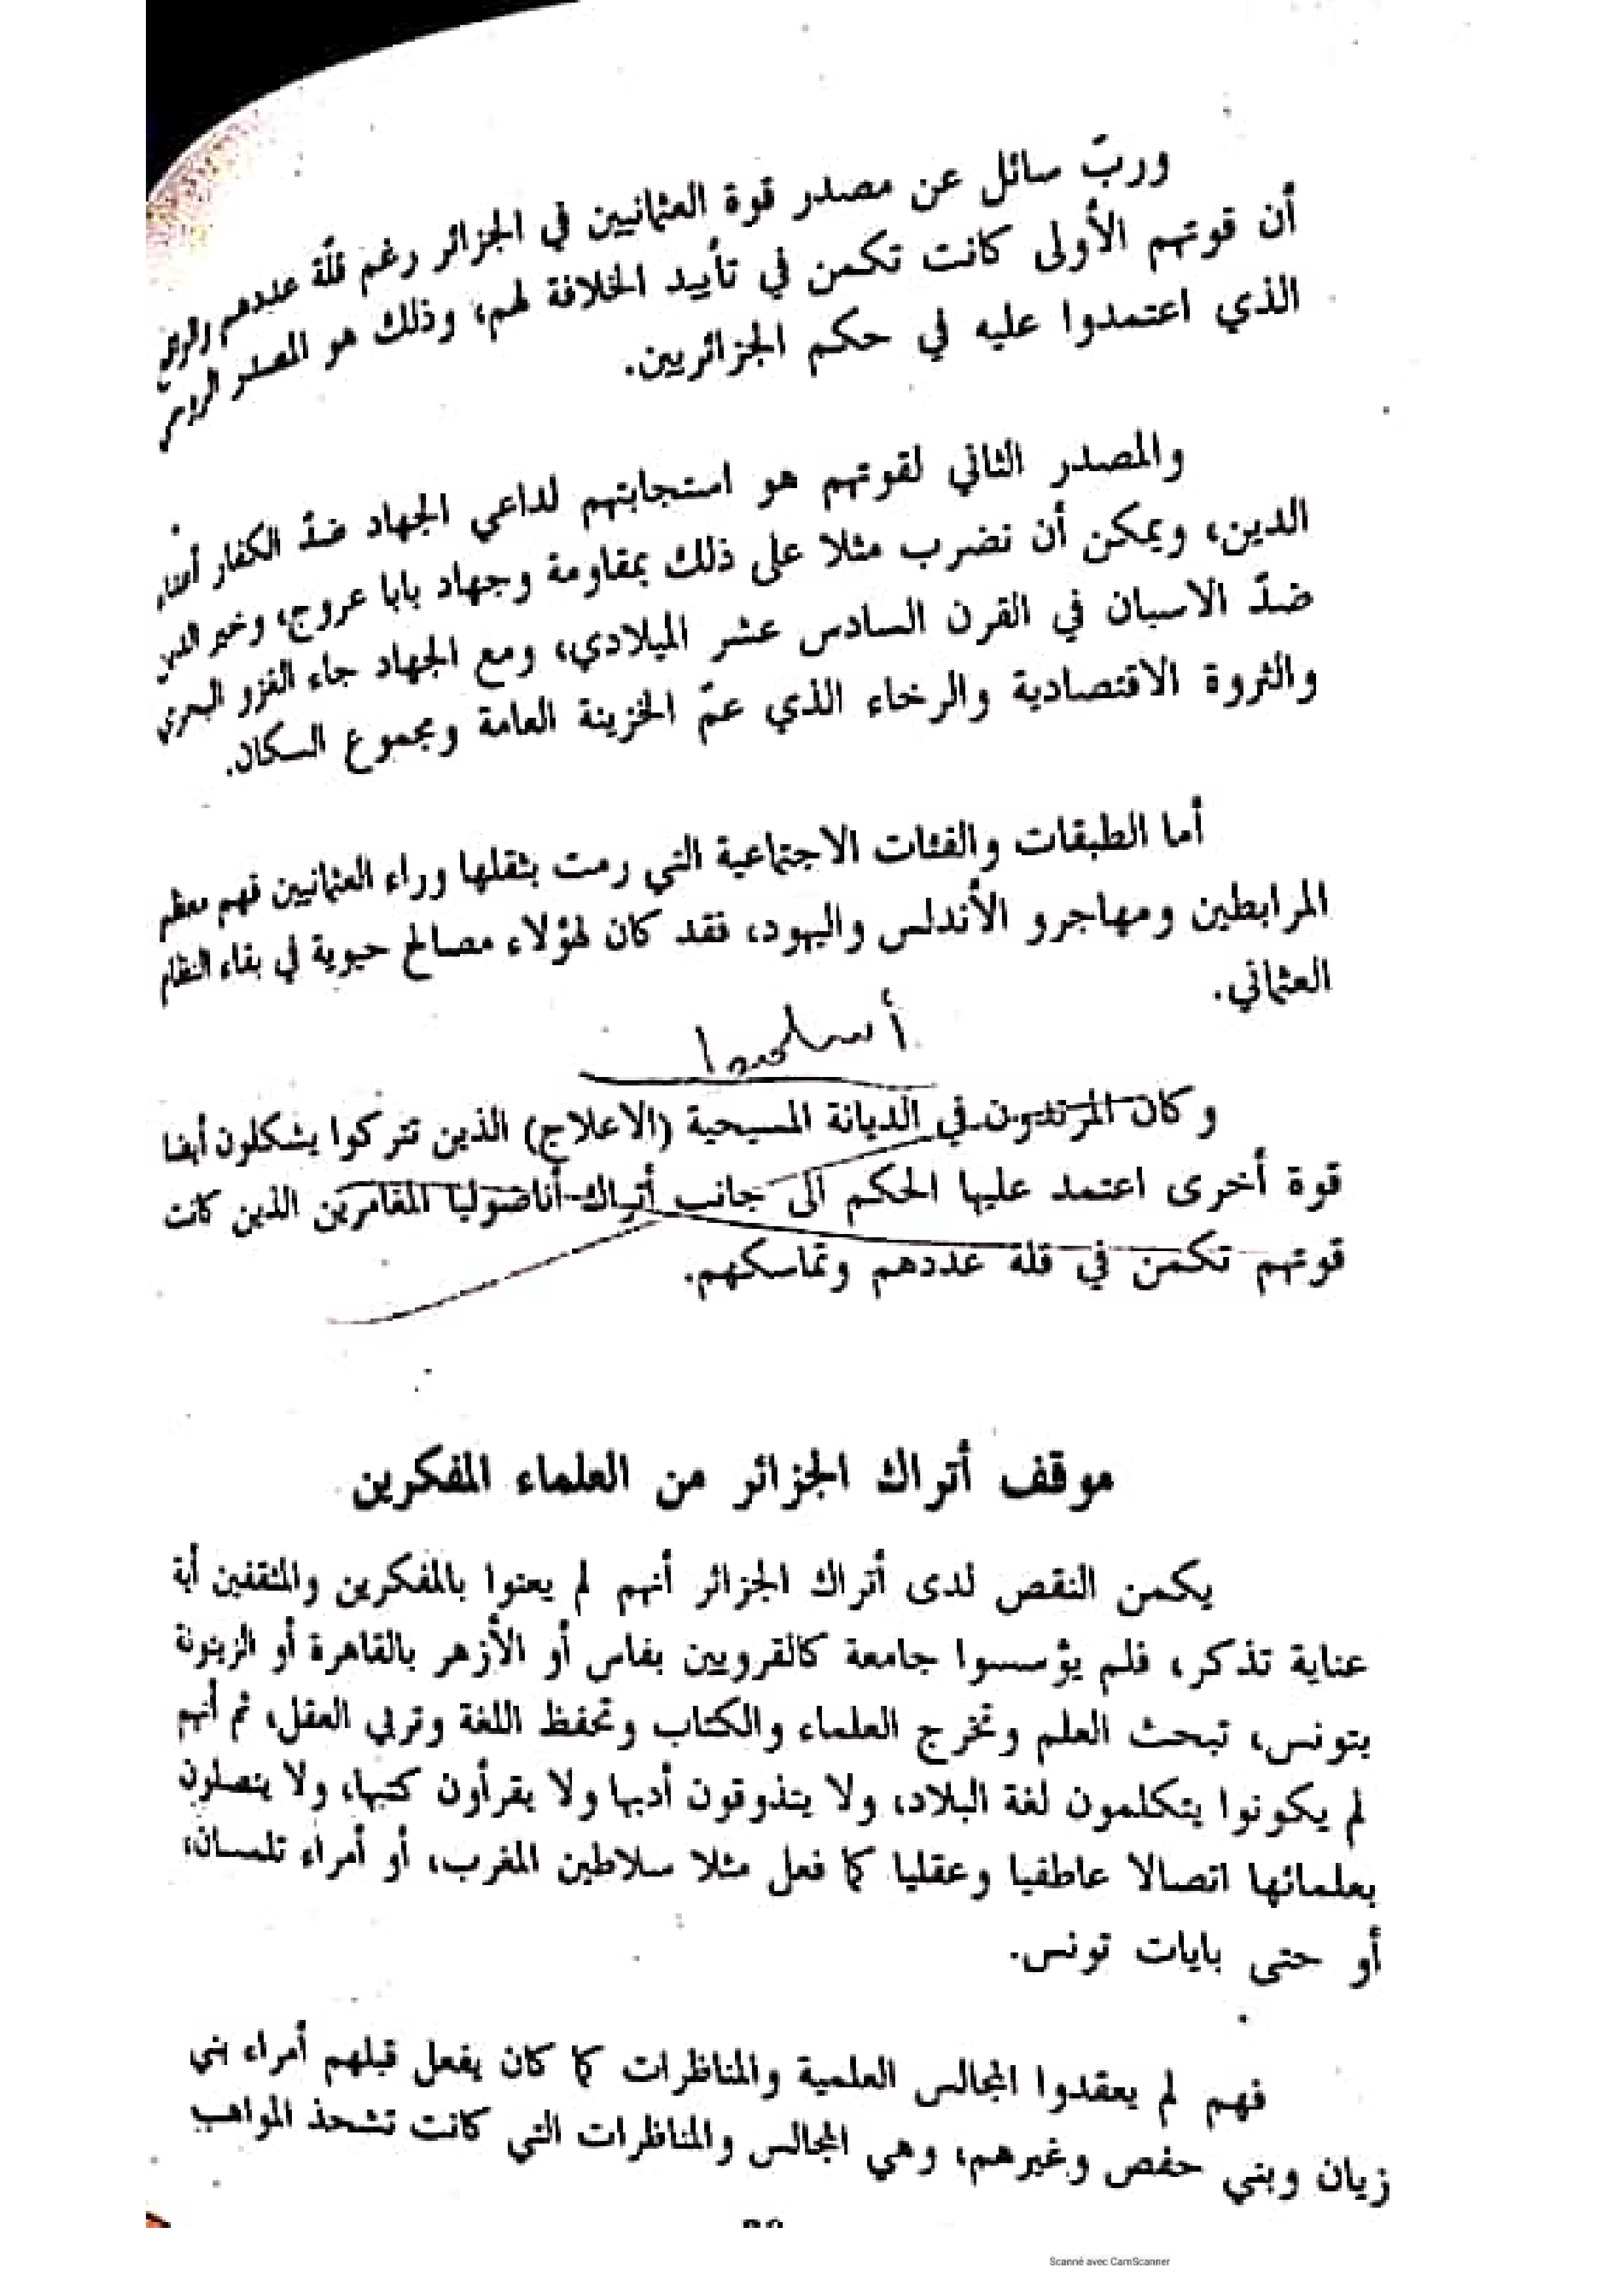 وربّ سائل عن مصدر قوة العثمانيين في الجزائر رغم قلّة عددهم
أن قوتهم الأولى كانت تكمن في تأييد الخلافة لهم، وذلك هو المصدر
الذي اعتمدوا عليه في حكم الجزائريين.
والمصدر الثاني لقوتهم هو استجابتهم لداعي الجهاد ضدّ الكفار
الدين، ويمكن أن نضرب مثلا على ذلك بمقاومة وجهاد بابا عروج، وخير الدين
ضدّ الاسبان في القرن السادس عشر الميلادي، ومع الجهاد جاء الغزو البحري
والثروة الاقتصادية والرخاء الذي عمّ الخزينة العامة ومجموع السكان.
أما الطبقات والفئات الاجتماعية التي رمت بثقلها وراء العثمانيين فهم معظم
المرابطين ومهاجرو الأندلس واليهود، فقد كان لهؤلاء مصالح حيوية في بقاء النظام
العثماني.
وكان المرتدون في الديانة المسيحية (الاعلاج) الذين تتركوا يشكلون أيضا
قوة أخرى اعتمد عليها الحكم الى جانب أتراك أناضوليا المغامرين الذين كانت
قوتهم تكمن في قلة عددهم وتماسكهم.
موقف أتراك الجزائر من العلماء المفكرين
يكمن النقص لدى أتراك الجزائر أنهم لم يعنوا بالمفكرين والمثقفين أية
عناية تذكر، فلم يؤسسوا جامعة كالقرويين بفاس أو الأزهر بالقاهرة أو الزيتونة
بتونس، تبحث العلم وتخرج العلماء والكتاب وتحفظ اللغة وتربي العقل، ثم أنهم
لم يكونوا يتكلمون لغة البلاد، ولا يتذوقون أدبها ولا يقرأون كتبها، ولا يتصلون
بعلمائها اتصالا عاطفيا وعقليا كما فعل مثلا سلاطين المغرب، أو أمراء تلمسان،
أو حتى بايات تونس.
فهم لم يعقدوا المجالس العلمية والمناظرات كما كان يفعل قبلهم أمراء بني
زيان وبني حفص وغيرهم، وهي المجالس والمناظرات التي كانت تشحذ المواهب
Scanné avec CamScanner